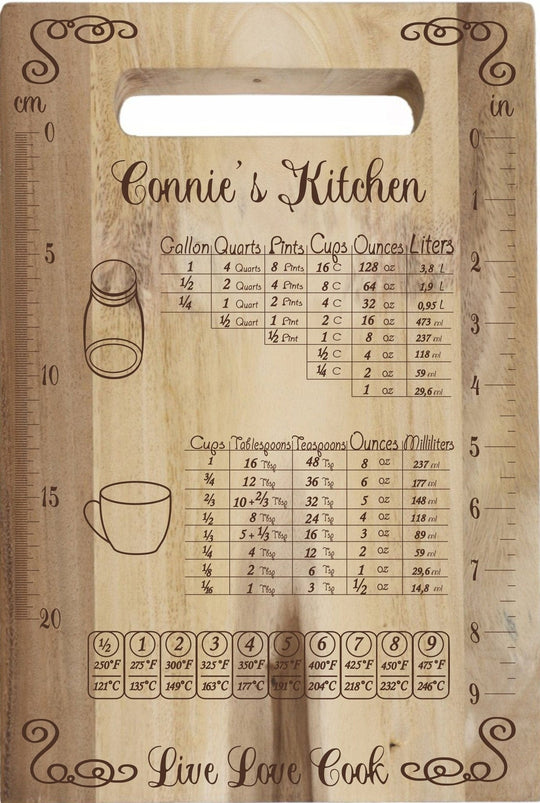 cm in
0 0
1
5 2
3
10 4
5
15 6
7
20 8
9
Connie's Kitchen
Gallon Quarts Pints Cups Ounces Liters
1 4 Quarts 8 Pints 16 C 128 oz 3,8 L
½ 2 Quarts 4 Pints 8 C 64 oz 1,9 L
¼ 1 Quart 2 Pints 4 C 32 oz 0,95 L
½ Quart 1 Pint 2 C 16 oz 473 ml
½ Pint 1 C 8 oz 237 ml
½ C 4 oz 118 ml
¼ C 2 oz 59 ml
1 oz 29,6 ml
Cups Tablespoons Teaspoons Ounces Milliliters
1 16 Tbsp 48 Tsp 8 oz 237 ml
¾ 12 Tbsp 36 Tsp 6 oz 177 ml
⅔ 10+⅔ Tbsp 32 Tsp 5 oz 148 ml
½ 8 Tbsp 24 Tsp 4 oz 118 ml
⅓ 5+⅓ Tbsp 16 Tsp 3 oz 89 ml
¼ 4 Tbsp 12 Tsp 2 oz 59 ml
⅛ 2 Tbsp 6 Tsp 1 oz 29,6 ml
1/16 1 Tbsp 3 Tsp ½ oz 14,8 ml
½ 1 2 3 4 5 6 7 8 9
250°F 275°F 300°F 325°F 350°F 375°F 400°F 425°F 450°F 475°F
121°C 135°C 149°C 163°C 177°C 191°C 204°C 218°C 232°C 246°C
Live Love Cook